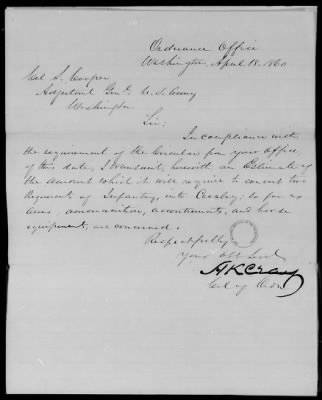 Ordnance Office
Washington, April 18. 1860
Col S. Cooper
Adjutant Genl. U. S. Army
Washington
Sir:
In compliance with
the requirement of the Circular from your Office
of this date, I transmit, herewith an Estimate of
the amount which it will require to convert two
Regiments of Infantry, into Cavalry; so far as
arms, ammunition, accoutrements, and horse
equipments, are concerned.
Respectfully
Your Obt Servt
H K Craig
Col of Ord.